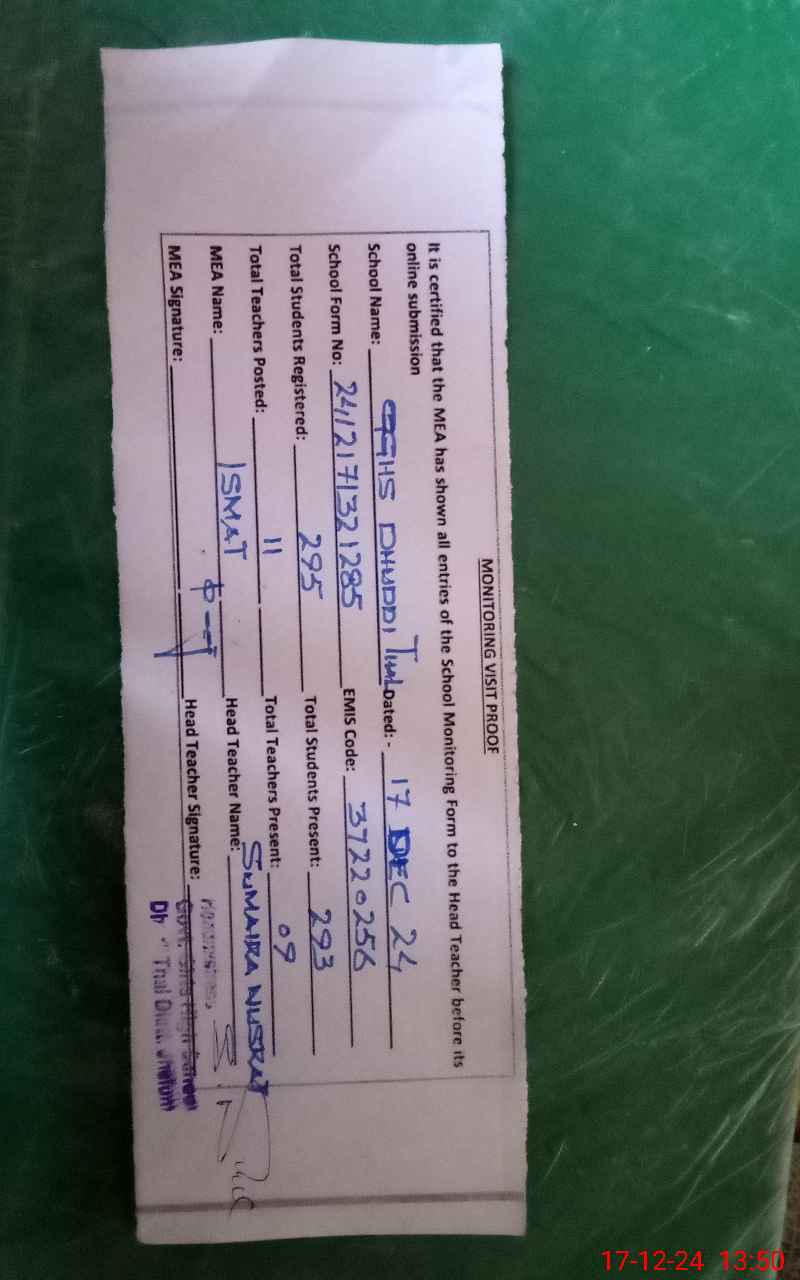 MONITORING VISIT PROOF
It is certified that the MEA has shown all entries of the School Monitoring Form to the Head Teacher before its
online submission
School Name: GGHS DHUDDI Thal Dated: - 17 DEC 24
School Form No: 2412171321285 EMIS Code: 37220256
Total Students Registered: 295 Total Students Present: 293
Total Teachers Posted: 11 Total Teachers Present: 09
MEA Name: ISMAT Head Teacher Name: SUMAIRA NUSRAT
MEA Signature: Head Teacher Signature:
Govt. Girls High School
Thal Distt. Jhelum
17-12-24 13:50